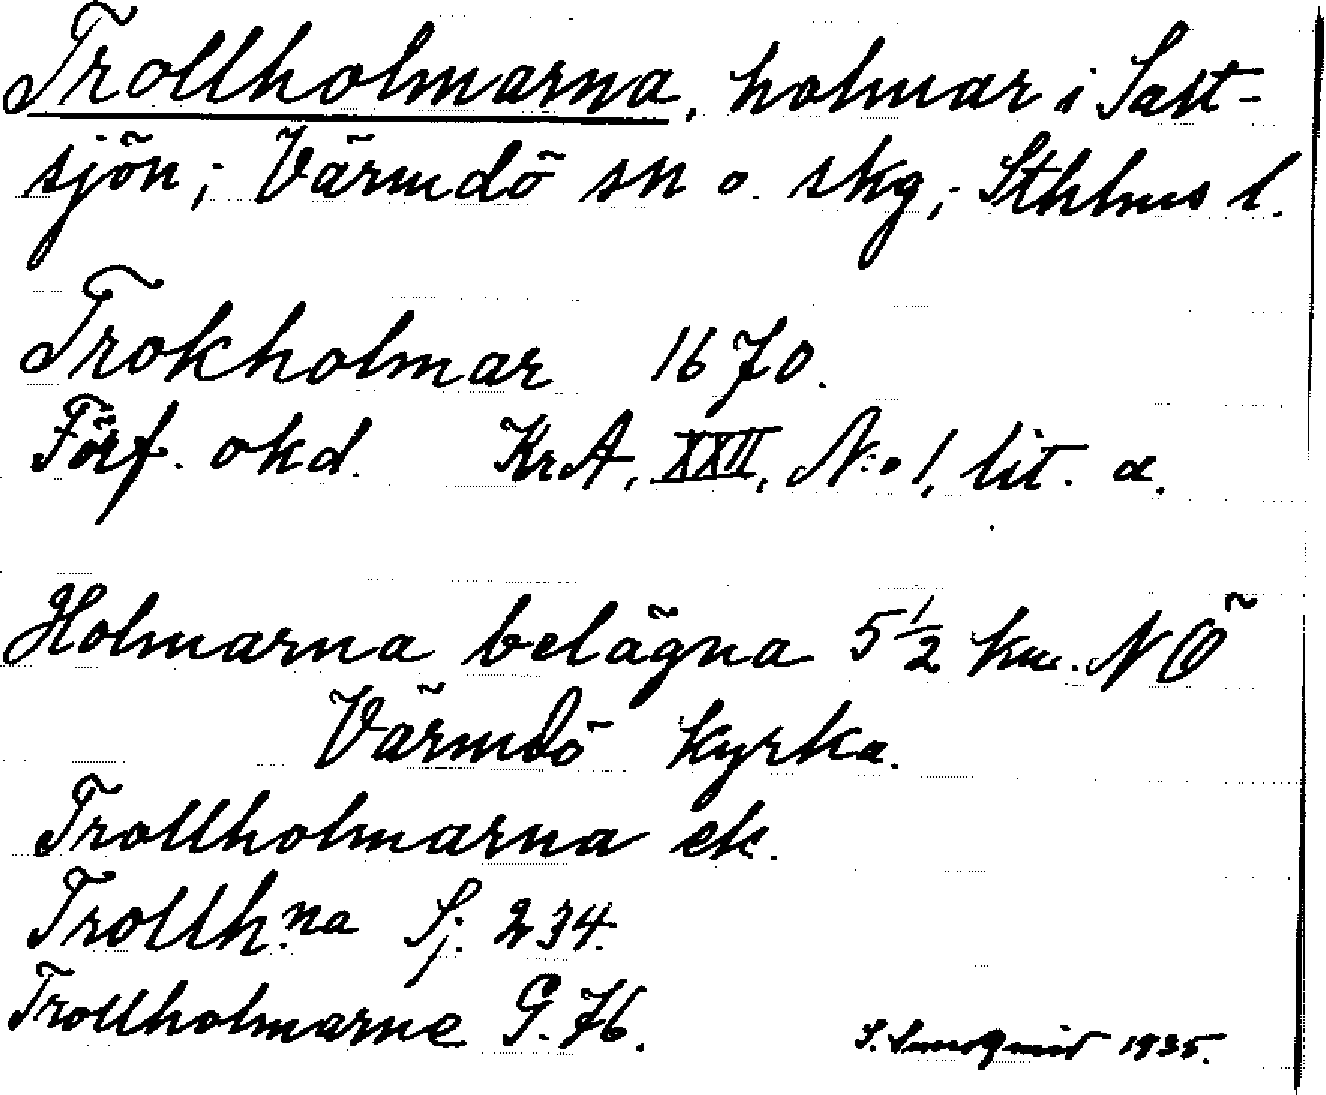 Trollholmarna, holmar i Salt-
sjön; Värmdö sn o. skg; Sthlms l.
Trokholmar 1670.
Förf. okd. KrA, XXII, N:o 1, lit. a.
Holmarna belägna 5 1/2 km. NÖ
Värmdö kyrka.
Trollholmarna ek.
Trollh:na Sj. 234.
Trollholmarne G. 76.
S. 1935.